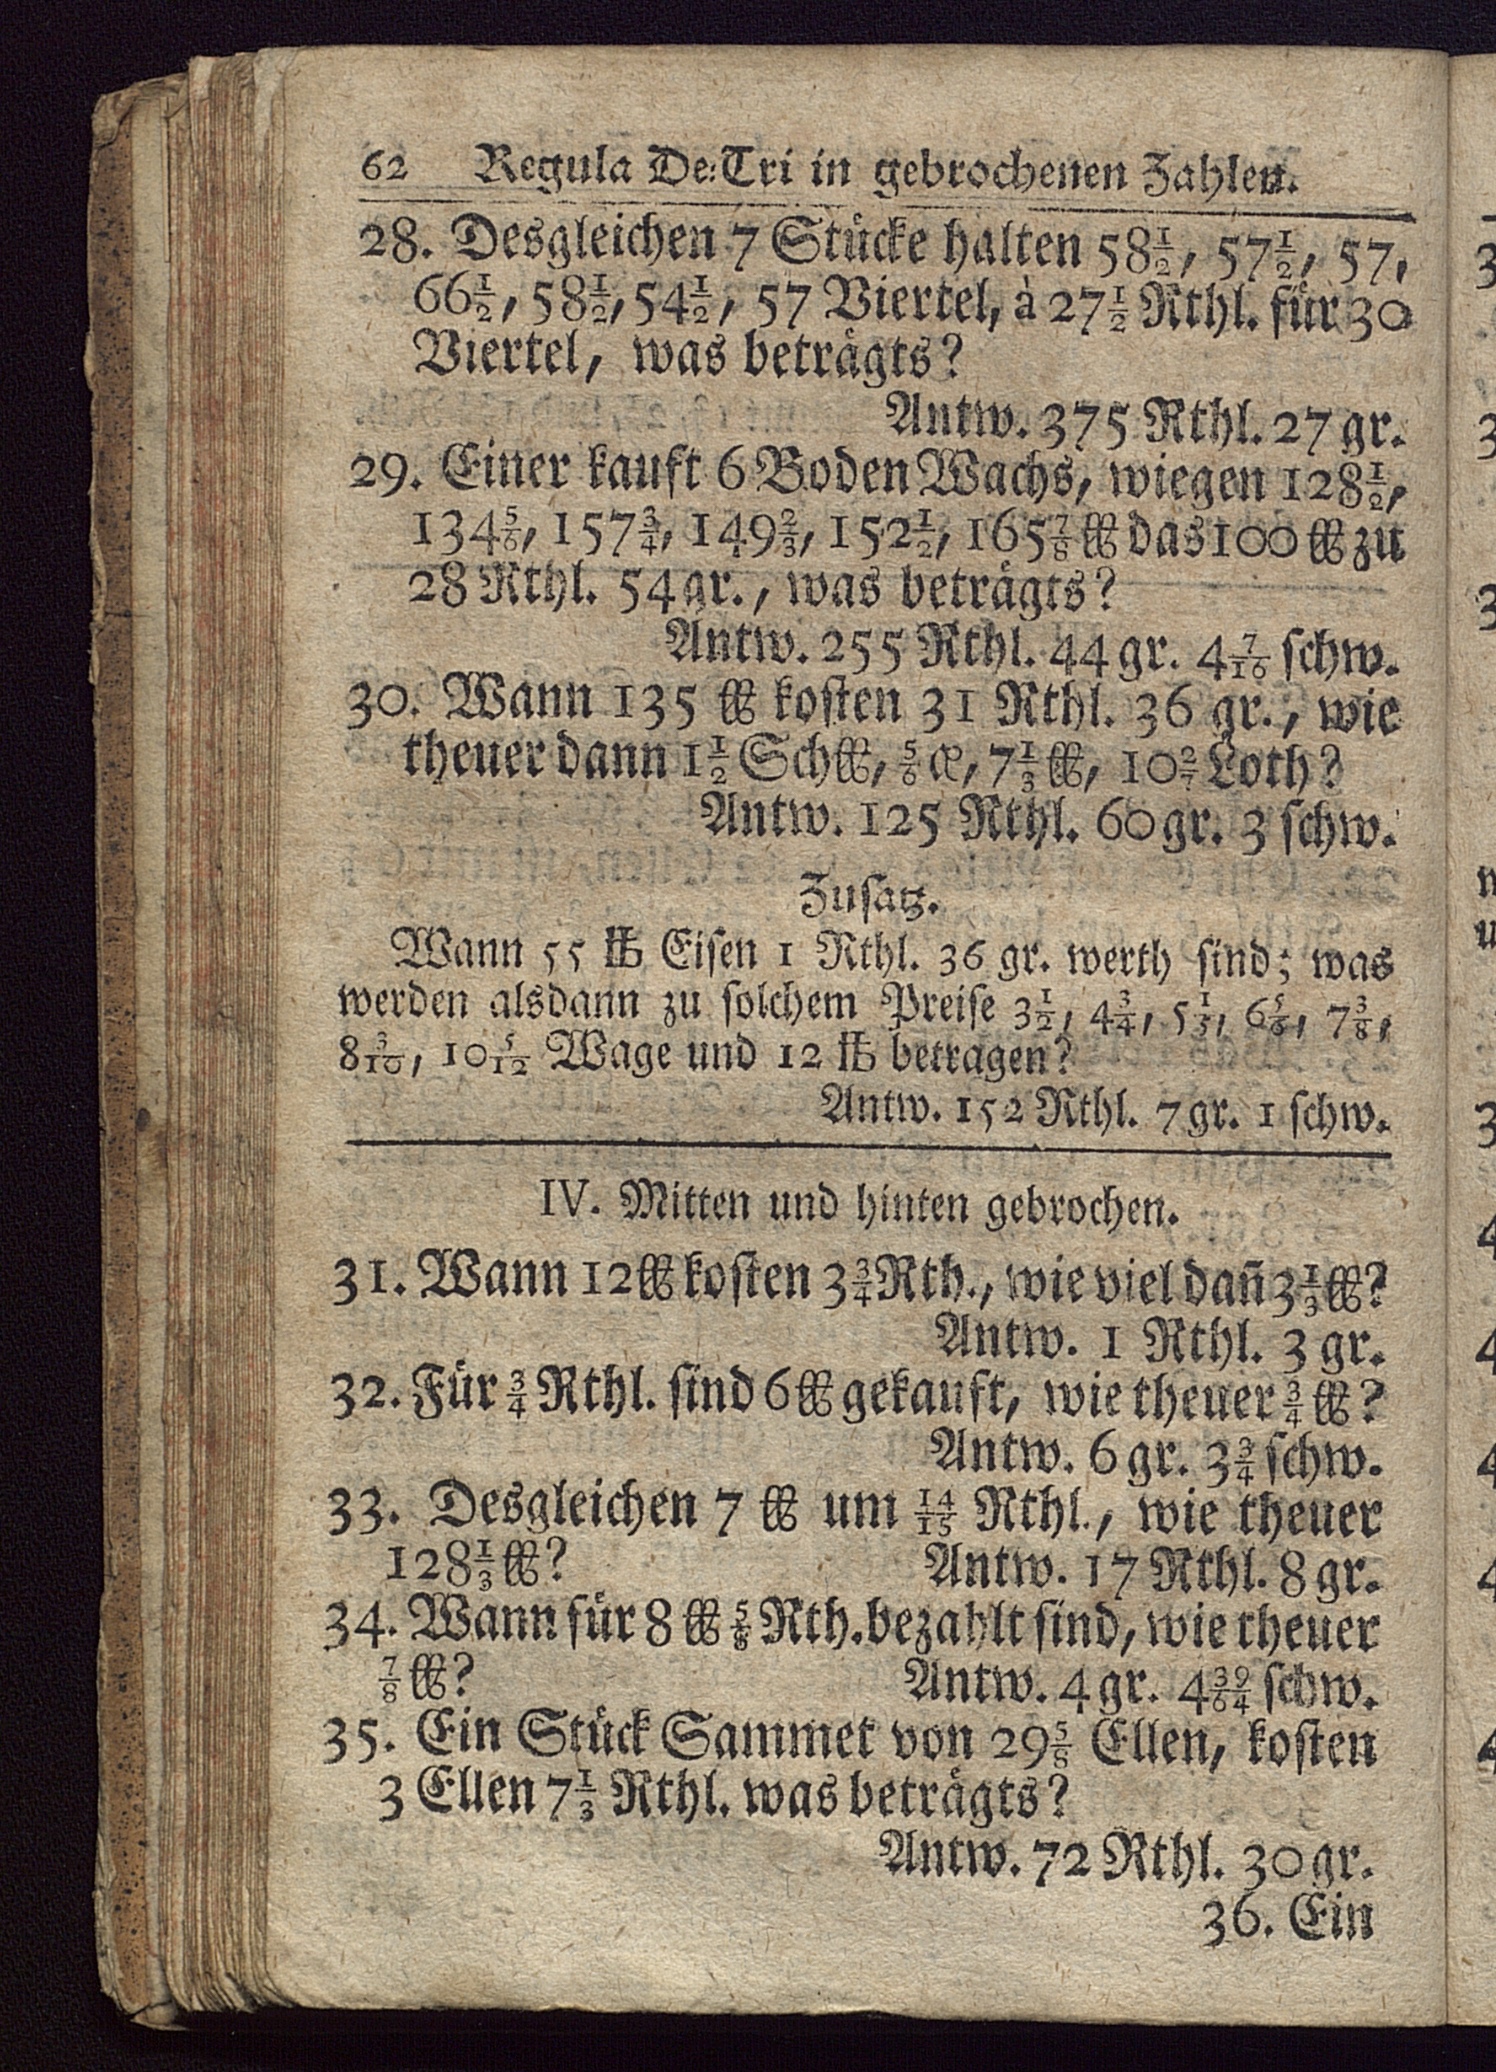 62 Regula De=Tri in gebrochenen Zahlen.
28. Desgleichen 7 Stücke halten 58½, 57½, 57,
66½, 58½, 54½, 57 Viertel, à 27½ Rthl. für 30
Viertel, was beträgts?
Antw. 375 Rthl. 27 gr.
29. Einer kauft 6 Boden Wachs, wiegen 128½,
134⅚, 157¾, 149⅔, 152½, 165⅞ ℔ das 100 ℔ zu
28 Rthl. 54 gr., was beträgts?
Antw. 255 Rthl. 44 gr. 4 7/16 schw.
30. Wann 135 ℔ kosten 31 Rthl. 36 gr., wie
theuer dann 1½ Sch℔, ⅚ , 7⅓ ℔, 10 2/7 Loth?
Antw. 125 Rthl. 60 gr. 3 schw.
Zusatz.
Wann 55 ℔ Eisen 1 Rthl. 36 gr. werth sind; was
werden alsdann zu solchem Preise 3½, 4¾, 5⅓, 6⅚, 7⅜,
8 3/10, 10 5/12 Wage und 12 ℔ betragen?
Antw. 152 Rthl. 7 gr. 1 schw.
IV. Mitten und hinten gebrochen.
31. Wann 12 ℔ kosten 3¾ Rth., wie viel dañ 3⅓ ℔?
Antw. 1 Rthl. 3 gr.
32. Für ¾ Rthl. sind 6 ℔ gekauft, wie theuer ¾ ℔?
Antw. 6 gr. 3¾ schw.
33. Desgleichen 7 ℔ um 14/15 Rthl., wie theuer
128⅓ ℔? Antw. 17 Rthl. 8 gr.
34. Wann für 8 ℔ ⅝ Rth. bezahlt sind, wie theuer
⅞ ℔? Antw. 4 gr. 4 39/64 schw.
35. Ein Stück Sammet von 29⅝ Ellen, kosten
3 Ellen 7⅓ Rthl. was beträgts?
Antw. 72 Rthl. 30 gr.
36. Ein